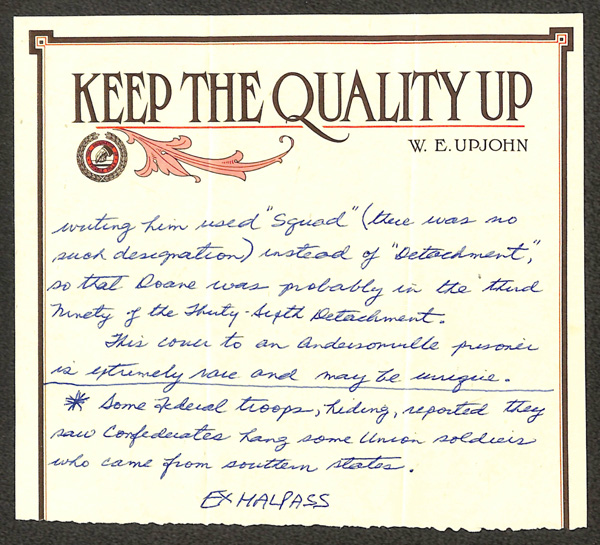 KEEP THE QUALITY UP
W. E. UPJOHN
writing him used "Squad" (there was no
such designation) instead of "Detachment",
so that Doane was probably in the third
Ninety of the Thirty-Sixth Detachment.
This cover to an Andersonville prisoner
is extremely rare and may be unique.
* Some Federal troops, hiding, reported they
saw Confederates hang some Union soldiers
who came from southern states.
EX MALPASS